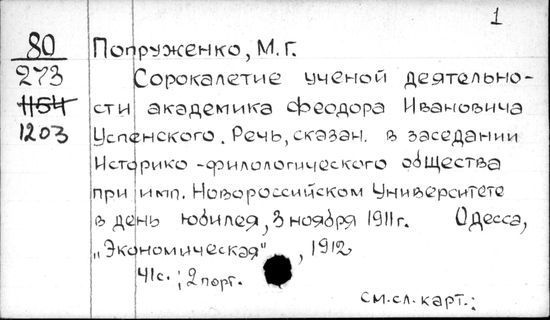 1
80 Попруженко, М. Г.
273 Сорокалетие ученой деятельно-
1154 сти академика Феодора Ивановича
1203 Успенского. Речь, сказан. в заседании
Историко-филологического общества
при имп. Новороссийском Университете
в день юбилея, 3 ноября 1911 г. Одесса,
„Экономическая", 1912
41с.; 2 порт.
см. сл. карт.: